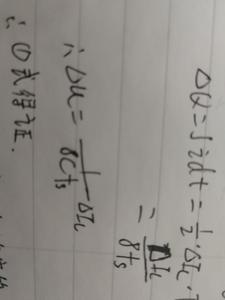 ΔQ = ∫idt = 1/2 · ΔI_L ·
= ΔI_L / 8f_s
∴ ΔU = 1 / 8Cf_s ΔI_L
∴ ①式得证.